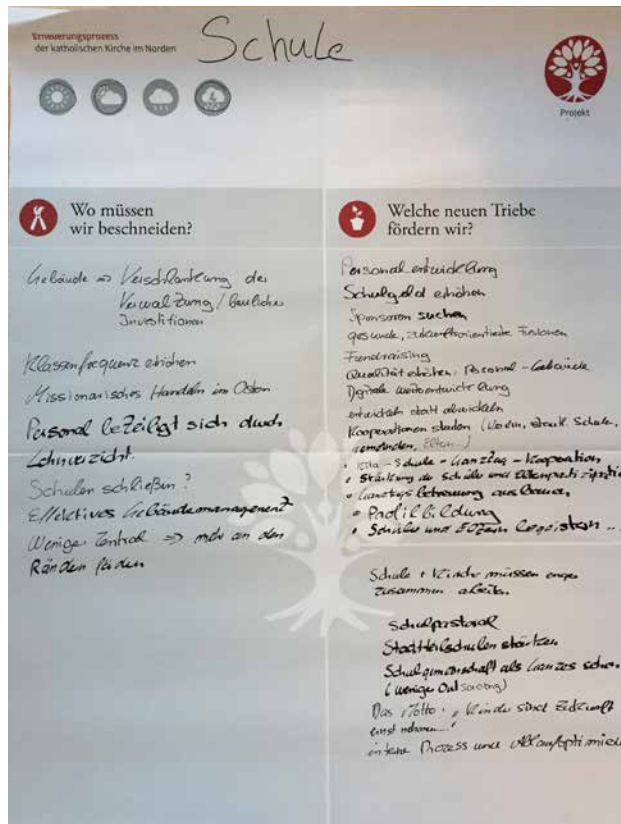 Erneuerungsprozess
der katholischen Kirche im Norden
Schule
Projekt
Wo müssen
wir beschneiden?
Gebäude => Verschlankung der
Verwaltung / bauliche
Investitionen
Klassenfrequenz erhöhen
Missionarisches Handeln im Osten
Personal beteiligt sich durch
Lohnverzicht.
Schulen schließen?
Effektives Gebäudemanagement
Weniger Zentral => mehr an den
Rändern
Welche neuen Triebe
fördern wir?
Personalentwicklung
Schulgeld erhöhen
Sponsoren suchen
gesunde, zukunftsorientierte Fusionen
Fundraising
Qualität erhöhen: Personal - Gebäude
Digitale Weiterentwicklung
entwickeln statt abwickeln
Kooperationen (Verein, staatl. Schule,
Gemeinden, Eltern...)
• Kita - Schule - Ganztag - Kooperation
• Stärkung der Schüler und
• Ganztagsbetreuung ausbauen
• Profilbildung
• Schüler und Eltern begeistern ..
Schule + Kirche müssen enger
zusammen arbeiten
Schulpastoral
Stadtteilschulen stärken
Schulgemeinschaft als Ganzes
(weniger Outsourcing)
Das Motto: „Kinder sind Zukunft
ernst nehmen..."
interne Prozess und